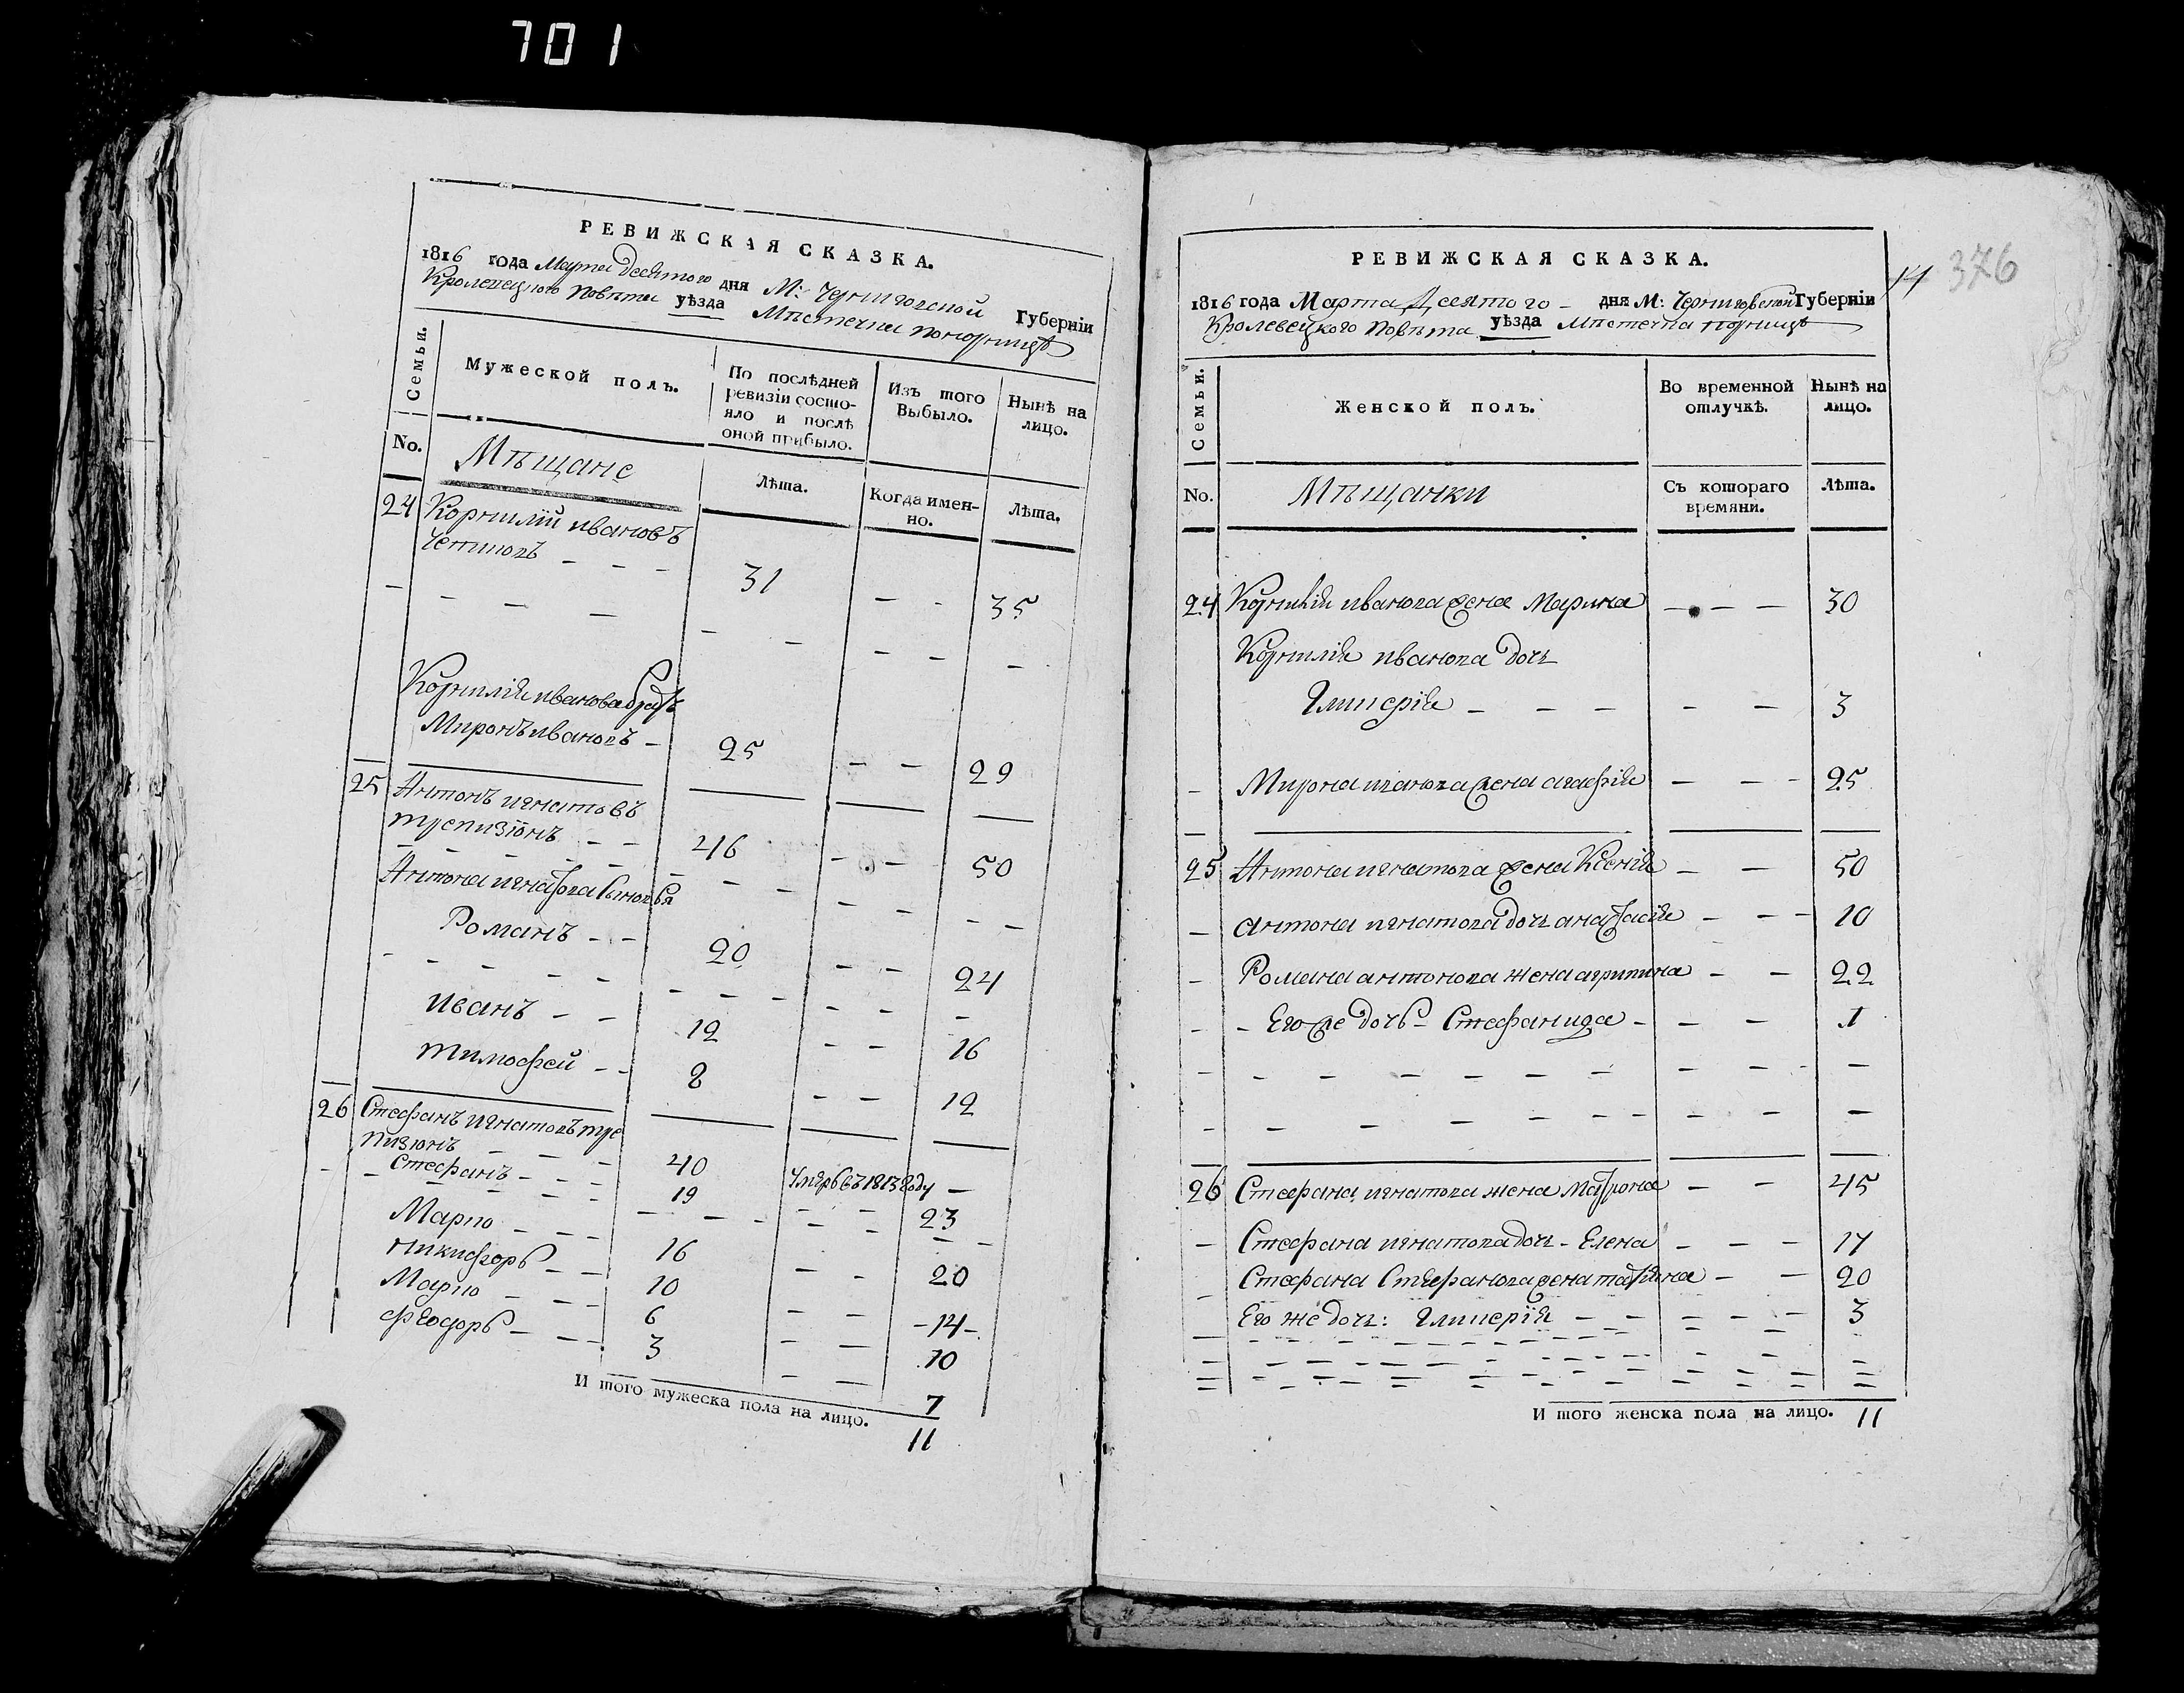 701
РЕВИЖСКАЯ СКАЗКА.
1816 года Марта десятого дня М: Черниговской Губерніи
Кролевецкого Повѣта уѣзда Мѣстечка Понорницѣ
Семьи.
Мужеской полъ.
По послѣдней ревизіи состояло и послѣ оной прибыло.
Изъ того Выбыло.
Нынѣ на лицо.
No.
Мѣщане
Лѣта.
Когда имен-но.
Лѣта.
24 Корнилій ивановъ
31 35
Корнилія иванова братъ
Миронъ ивановъ 25 29
25 Антонъ игнатовъ
46 50
Антона игнатова сыновья
Романъ 20 24
иванъ 12 16
тимофей 8 12
26 Стефанъ игнатовъ
40 умръ въ 1813 году
Стефанъ 19 23
Марко 16 20
Никифоръ 10 14
Марко 6 10
феодоръ 3 7
И того мужеска пола на лицо. 11
14 376
РЕВИЖСКАЯ СКАЗКА.
1816 года Марта Десятого дня М: Черниговской Губерніи
Кролевецкого Повѣта уѣзда Мѣстечка Понорницѣ
Семьи.
Женской полъ.
Во временной отлучкѣ.
Нынѣ на лицо.
No.
Мѣщанки
Съ котораго времяни.
Лѣта.
24 Корнилія иванова жена Марина 30
Корнилія иванова дочь
Гликерія 3
Мирона иванова жена агафія 25
25 Антона игнатова жена Ксенія 50
антона игнатова дочь анастасія 10
Романа антонова жена агрипина 22
Его же дочь Стефанида 1
26 Стефана игнатова жена Матрона 45
Стефана игнатова дочь Елена 17
Стефана Стефанова жена татiяна 20
Его же дочь: Гликерія 3
И того женска пола на лицо. 11